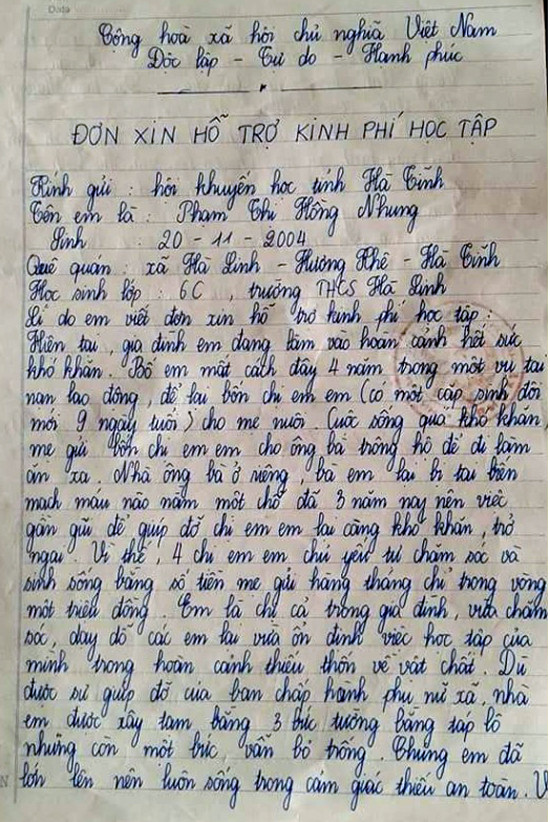 Data
Cộng hoà xã hội chủ nghĩa Việt Nam
Độc lập - Tự do - Hạnh phúc
ĐƠN XIN HỖ TRỢ KINH PHÍ HỌC TẬP
Kính gửi : hội khuyến học tỉnh Hà Tĩnh
Tên em là : Phạm Thị Hồng Nhung
Sinh : 20 - 11 - 2004
Quê quán : xã Hà Linh - Hương Khê - Hà Tĩnh
Học sinh lớp : 6C , trường THCS Hà Linh
Lí do em viết đơn xin hỗ trợ kinh phí học tập :
Hiện tại, gia đình em đang lâm vào hoàn cảnh hết sức
khó khăn. Bố em mất cách đây 4 năm trong một vụ tai
nạn lao động, để lại bốn chị em em (có một cặp sinh đôi
mới 9 ngày tuổi) cho mẹ nuôi. Cuộc sống quá khó khăn,
mẹ gửi bốn chị em em cho ông bà trông hộ để đi làm
ăn xa. Nhà ông bà ở riêng, bà em lại bị tai biến
mạch máu não nằm một chỗ đã 3 năm nay nên việc
gần gũi để giúp đỡ chị em em lại càng khó khăn, trở
ngại. Vì thế, 4 chị em em chủ yếu tự chăm sóc và
sinh sống bằng số tiền mẹ gửi hàng tháng chỉ trong vòng
một triệu đồng. Em là chị cả trong gia đình, vừa chăm
sóc, dạy dỗ các em lại vừa ổn định việc học tập của
mình trong hoàn cảnh thiếu thốn về vật chất. Dù
được sự giúp đỡ của ban chấp hành phụ nữ xã, nhà
em được xây tạm bằng 3 bức tường bằng táp lô
nhưng còn một bức vẫn bỏ trống. Chúng em đã
lớn lên nên luôn sống trong cảm giác thiếu an toàn. V